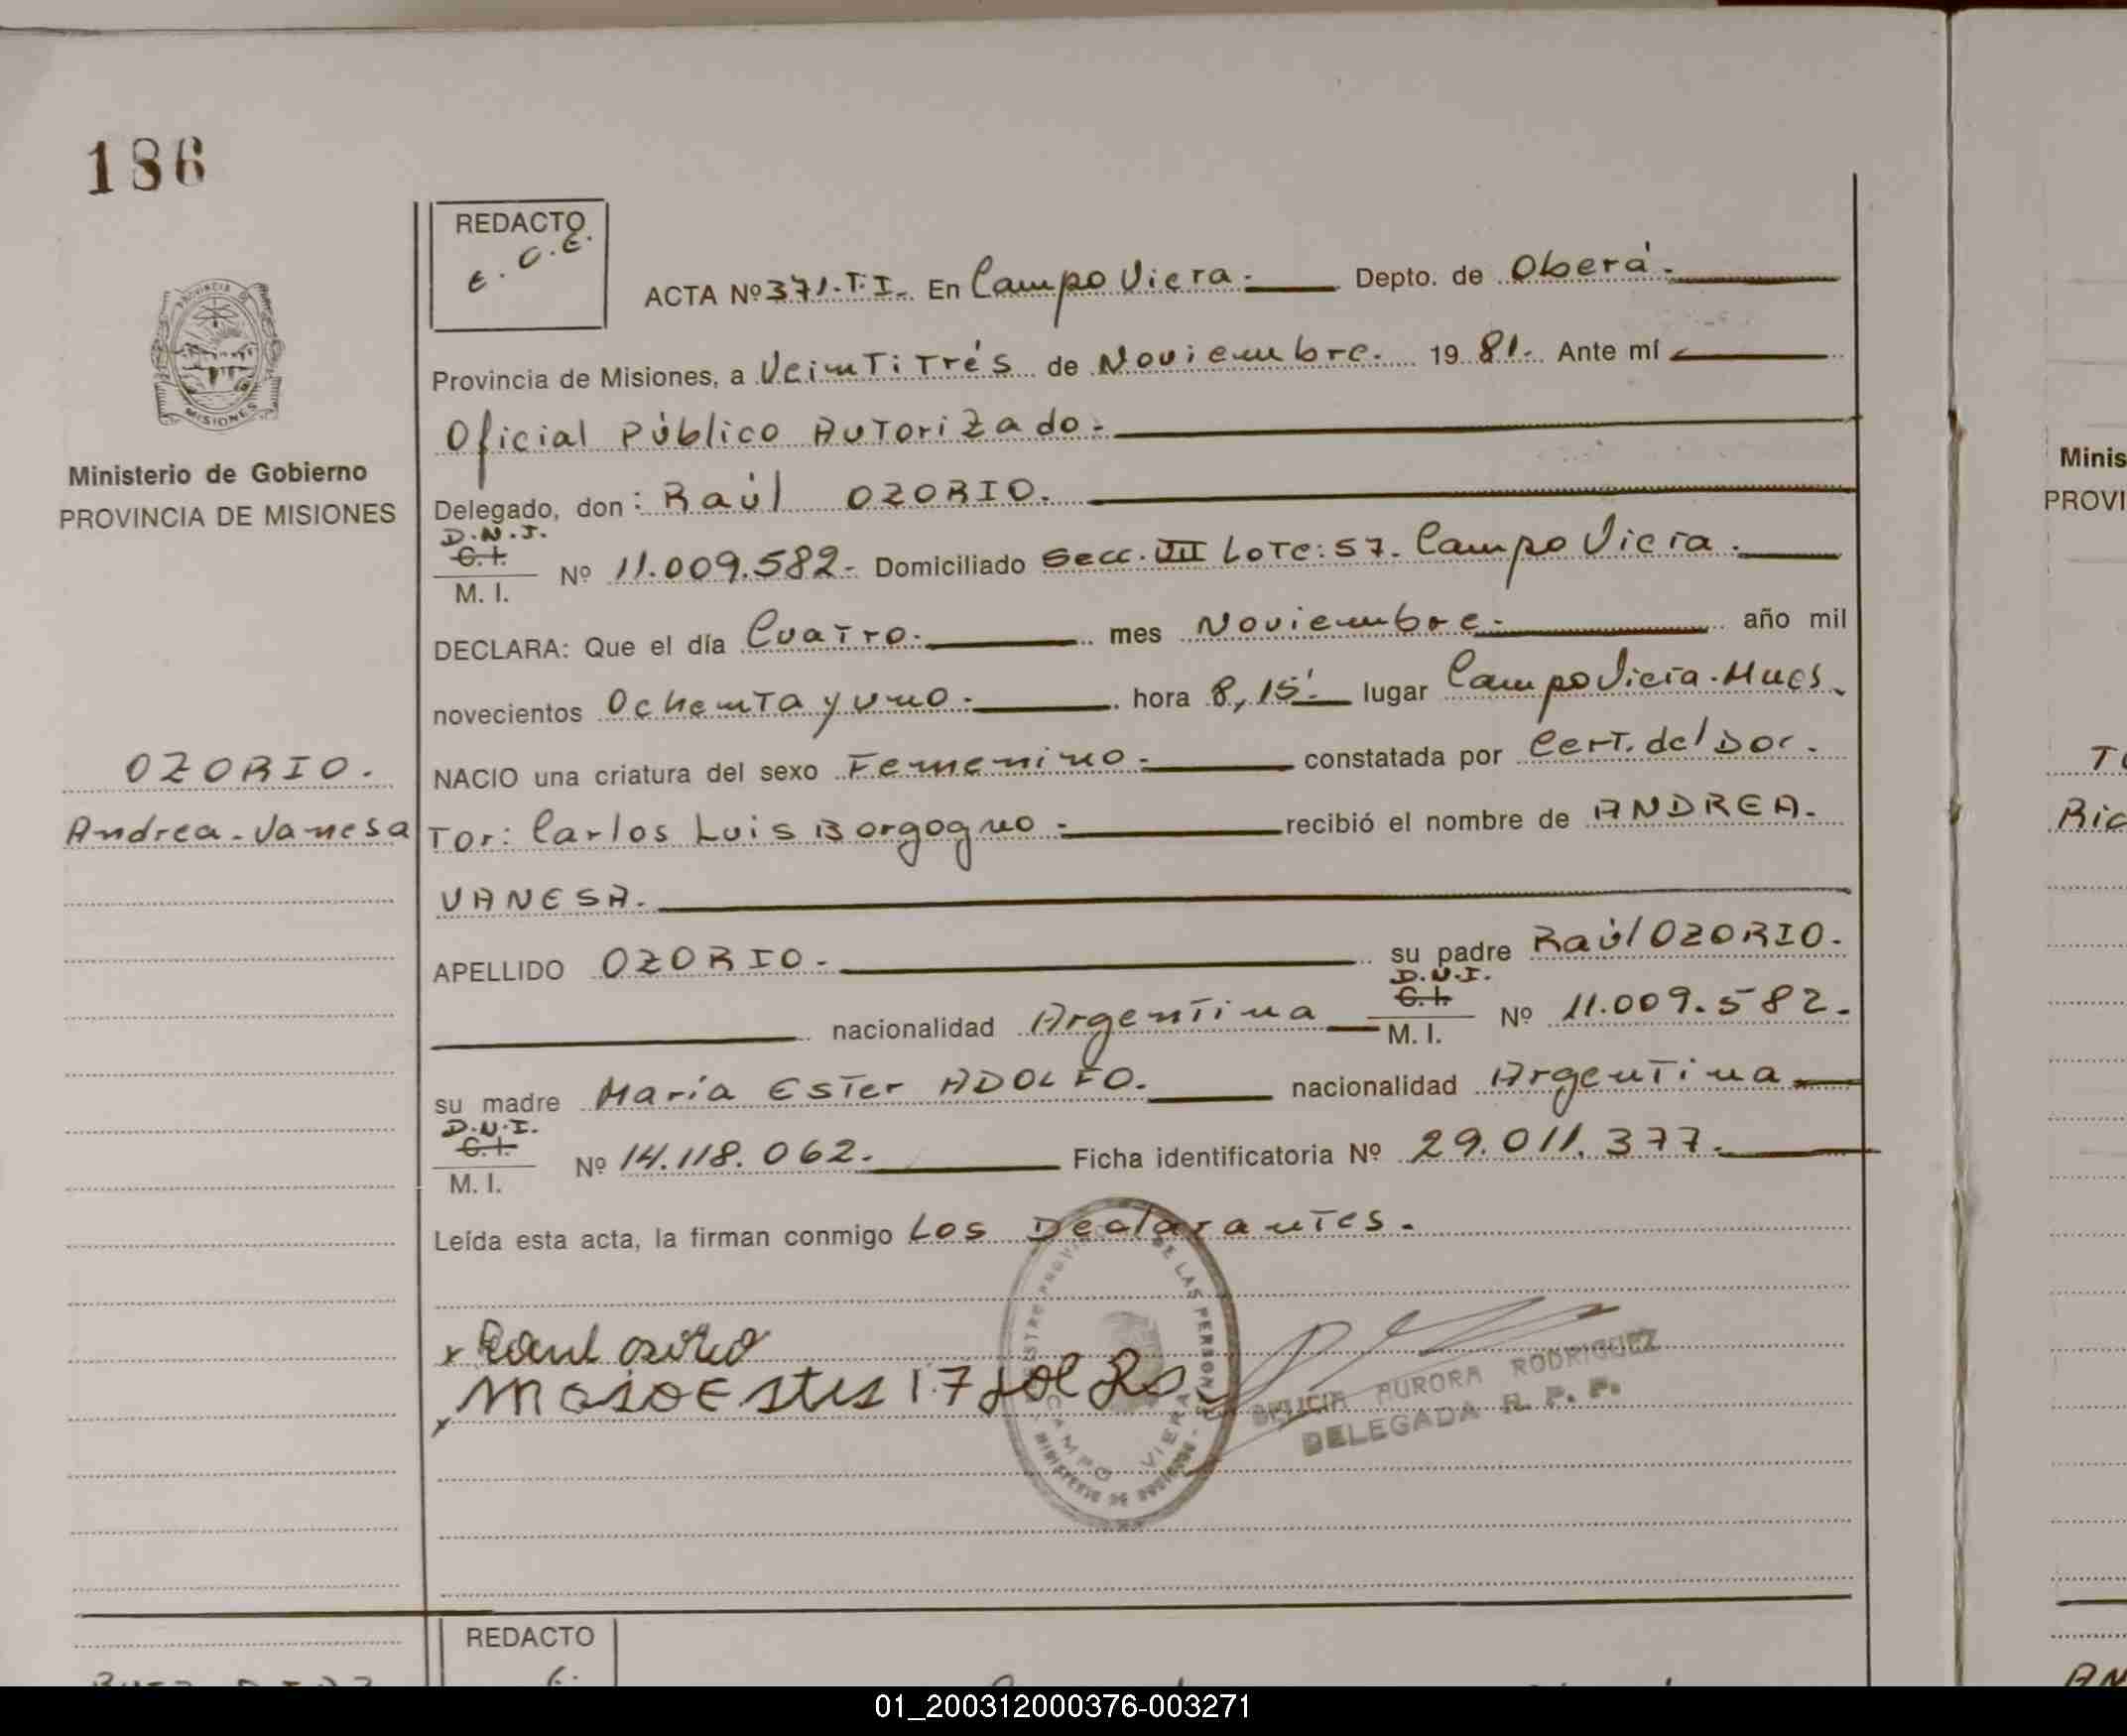 186
REDACTO
E. O. E.
ACTA Nº 371.T.I. En Campo Viera.- Depto. de Oberá.-
Provincia de Misiones, a Veinti Trés de Noviembre. 19 81.- Ante mí
Oficial Público Autorizado.-
Delegado, don: Raúl OZORIO.
D.N.I.
C.I.
M. I. Nº 11.009.582.- Domiciliado Secc. VII Lote: 57. Campo Viera.
DECLARA: Que el día Cuatro.- mes Noviembre.- año mil
novecientos Ochenta y uno.- hora 8,15'.- lugar Campo Viera.
NACIO una criatura del sexo Femenino.- constatada por Cert. del Doc.
Tor: Carlos Luis Borgogno.- recibió el nombre de ANDREA.
VANESA.
APELLIDO OZORIO.- su padre Raúl OZORIO.
nacionalidad Argentina D.N.I.
C.I.
M. I. Nº 11.009.582.
su madre María Ester ADOLFO. nacionalidad Argentina
D.N.I.
C.I.
M. I. Nº 14.118.062. Ficha identificatoria Nº 29.011.377.
Leída esta acta, la firman conmigo Los Declarantes.
x Raul
x
DE LAS PERSONAS
CAMPO VIERA
AURORA RODRIGUEZ
DELEGADA R. P. P.
PROVINCIA DE
MISIONES
Ministerio de Gobierno
PROVINCIA DE MISIONES
OZORIO.
Andrea-Vanesa
REDACTO
Minis
PROVI
Ric
AN
01_200312000376-003271